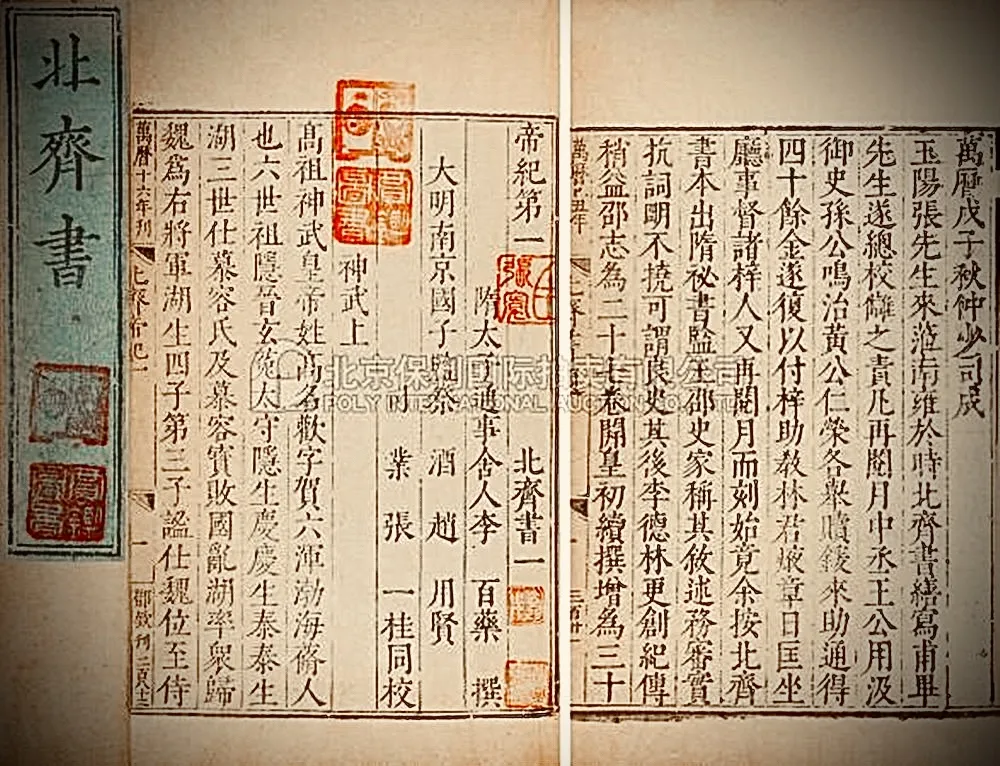 北齊書
萬曆戊子秋仲少司成
玉陽張先生來蒞南雍於時北齊書繕寫甫畢
先生遂總校讎之責凡再閱月中丞王公用汲
御史孫公鳴治黃公仁榮各舉贖鍰來助通得
四十餘金遂復以付梓助教林君
章日匡坐
廳事督諸梓人又再閱月而刻始竟余按北齊
書本出隋秘書監王邵史家稱其敘述務審實
抗詞明不撓可謂良史其後李德林更創紀傳
稍益邵志為二十七卷開皇初續撰增為三十
帝紀第一 北齊書一
隋太子通事舍人李百藥撰
大明南京國子監祭酒趙用賢
司業張一桂同校
神武上
高祖神武皇帝姓高名歡字賀六渾渤海蓨人
也六世祖隱晉玄菟太守隱生慶慶生泰泰生
湖三世仕慕容氏及慕容寶敗國亂湖率眾歸
魏為右將軍湖生四子第三子謐仕魏位至侍
萬曆十六年刊
一
北京保利国际拍卖有限公司
POLY INTERNATIONAL AUCTION CO.,LTD